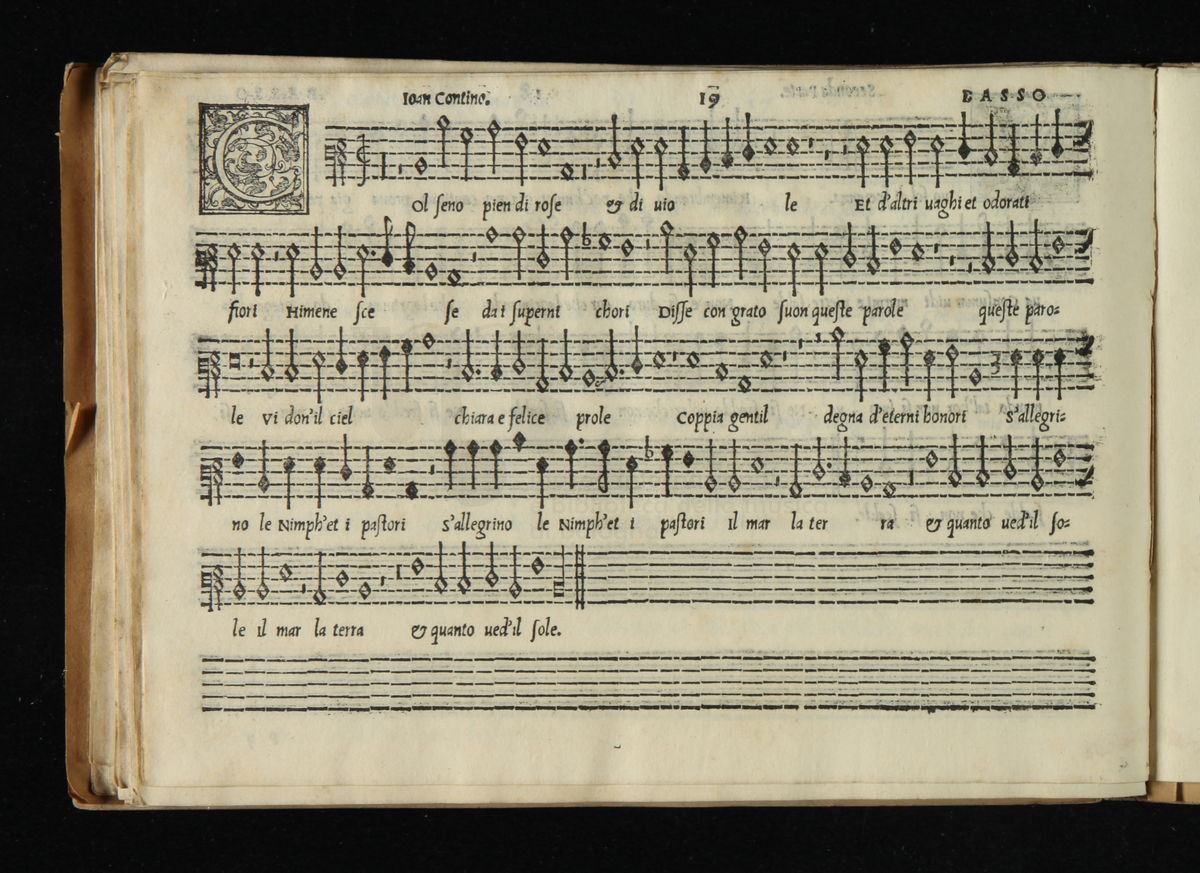 Ioan Contino. 19 BASSO
COl seno pien di rose & di uio le Et d'altri uaghi et odorati
fiori Himene sce se da i superni chori Disse con grato suon queste parole queste paro=
le Vi don'il ciel chiara e felice prole Coppia gentil degna d'eterni honori S'allegri=
no le Nimph'et i pastori S'allegrino le Nimph'et i pastori Il mar la ter ra & quanto ued'il so=
le il mar la terra & quanto ued'il sole.